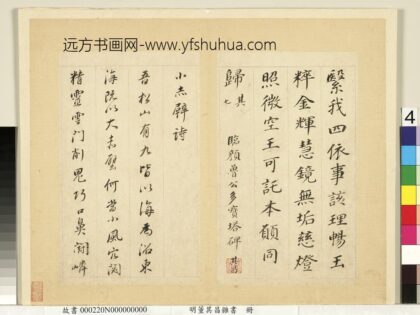 远方书画网-www.yfshuhua.com
繄我四依事該理暢玉
粹金輝慧鏡無垢慈燈
照微空王可託本願同
歸 其七
臨顏魯公多寶塔碑 其昌
小赤壁詩
吾松山有九皆以海為 東
海既以大赤壁何當小風
精靈雲門削鬼巧口鼻
4
故書 000220N000000000 明董其昌雜書 冊